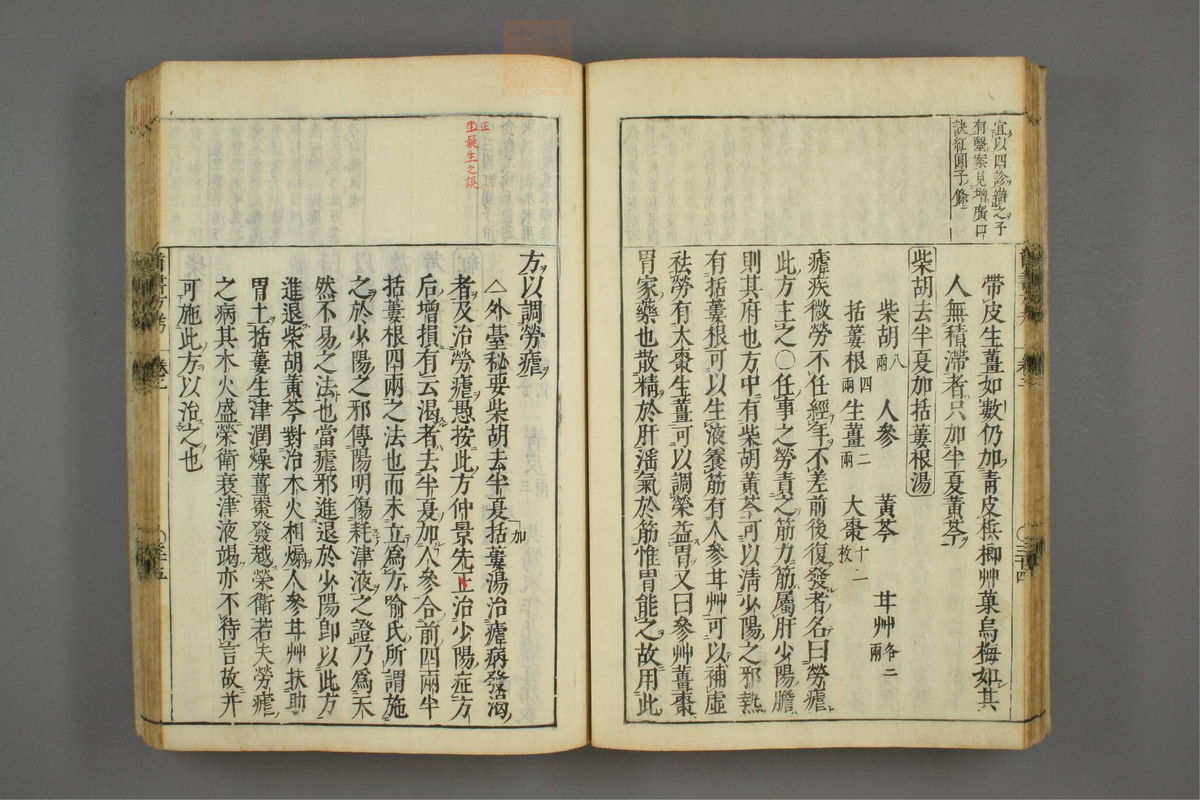 宜以四診辯之予
有醫案見增廣口
訣紅圓子ノ條ニ
帶皮生薑如數仍加青皮檳榔艸菓烏梅如其
人無積滯者只加半夏黃芩
柴胡去半夏加括蔞根湯
柴胡八兩 人參 黃芩 甘艸各二兩
括蔞根四兩 生薑二兩 大棗十二枚
瘧疾微勞不任經年不差前後復發者名曰勞瘧
此方主之〇任事之勞責之筋力筋屬肝少陽膽
則其府也方中有柴胡黃芩可以清少陽之邪熱
有括蔞根可以生液養筋有人參甘艸可以補虛
祛勞有大棗生薑可以調榮益胃又曰參艸薑棗
胃家藥也散精於肝滛氣於筋惟胃能之故用此
方以調勞瘧
△外臺秘要柴胡去半夏加括蔞湯治瘧病發渴
者及治勞瘧愚按此方仲景先正治少陽症方
后增損有云渴者去半夏加人參合前四兩半
括蔞根四兩之法也而未立爲方喻氏所謂施
之於少陽之邪傳陽明傷耗津液之證乃爲天
然不易之法也當瘧邪進退於少陽卽以此方
進退柴胡黃芩對治木火相煽人參甘艸扶助
胃土括蔞生津潤燥薑棗發越榮衛若夫勞瘧
之病其木火盛榮衛衰津液竭亦不待言故并
可施此方以治之也
正
生之誤
卷二
三十四
三十五